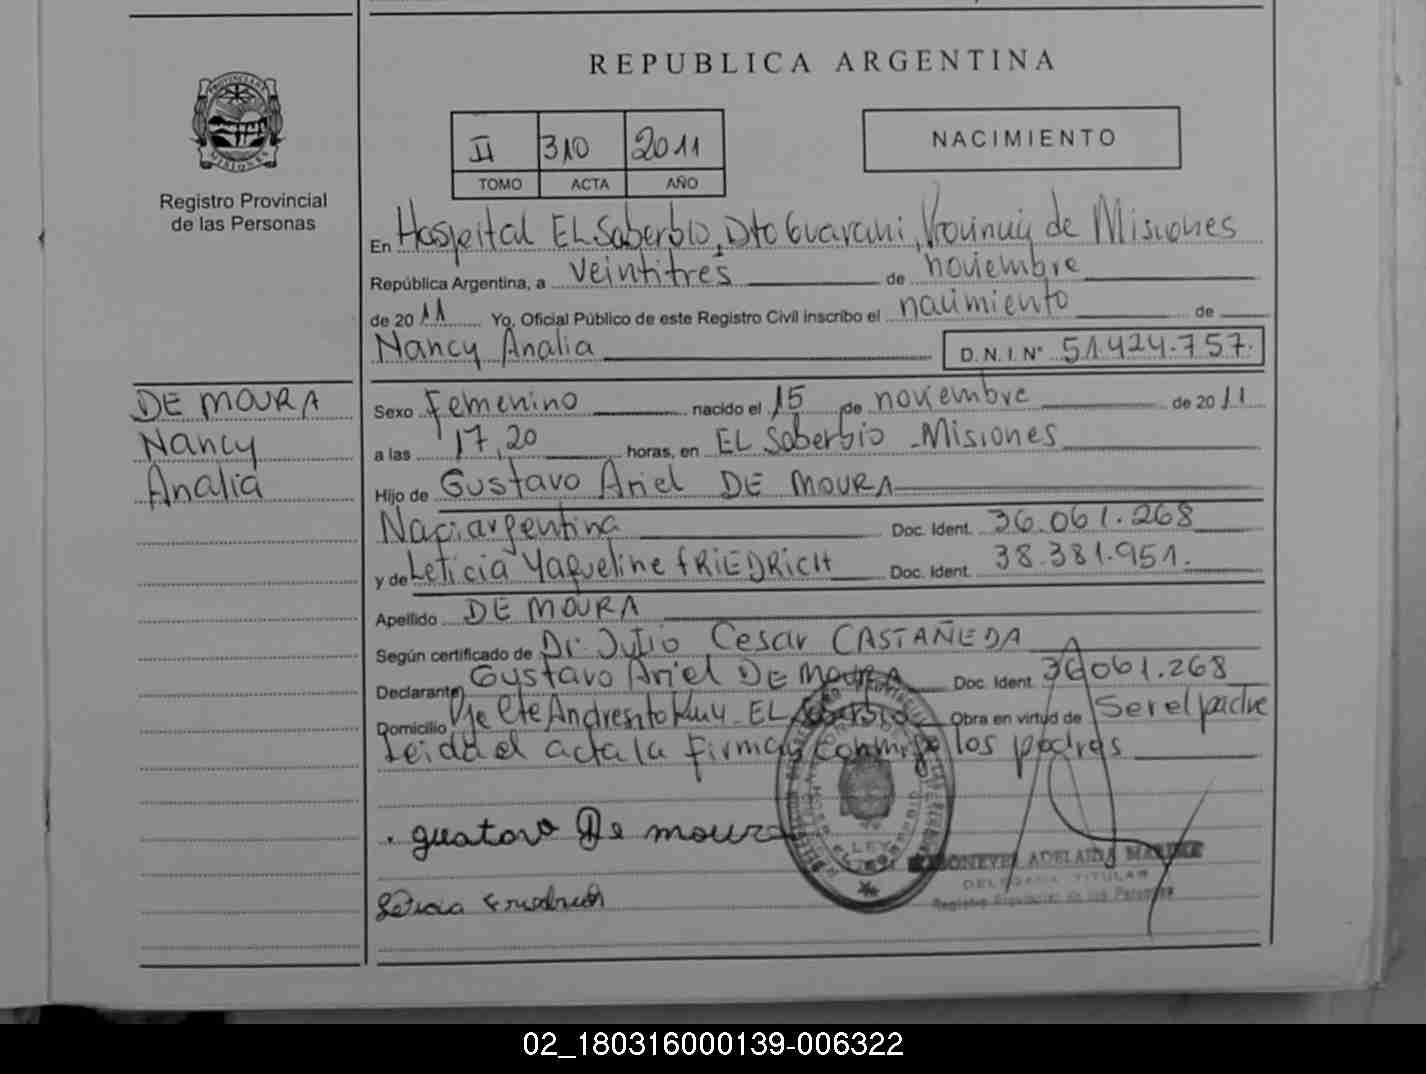 REPUBLICA ARGENTINA
PROVINCIA DE MISIONES
Registro Provincial
de las Personas
II 310 2011
TOMO ACTA AÑO
NACIMIENTO
En Hospital EL Soberbio, Dto Guarani, Provincia de Misiones
República Argentina, a veintitres de noviembre
de 2011 Yo, Oficial Público de este Registro Civil inscribo el nacimiento de
Nancy Analia D.N.I.N° 51.424.757.
DE MOURA
Nancy
Analia
Sexo Femenino nacido el 15 de noviembre de 2011
a las 17,20 horas, en EL Soberbio - Misiones
Hijo de Gustavo Ariel DE MOURA
Nac. argentina Doc. Ident. 36.061.268
y de Leticia Yaqueline FRIEDRICH Doc. Ident. 38.381.951.
Apellido DE MOURA
Según certificado de Dr. Julio Cesar CASTAÑEDA
Declarante Gustavo Ariel DE MOURA Doc. Ident. 36061.268
Domicilio Pje Cte Andresito Km 4 - EL Soberbio Obra en virtud de Ser el padre
Leida el acta la firman conmigo los padres
gustavo De moura
Leticia Friedrich
ADELAIDA
DELEGADA TITULAR
Registro Provincial de las Personas
02_180316000139-006322